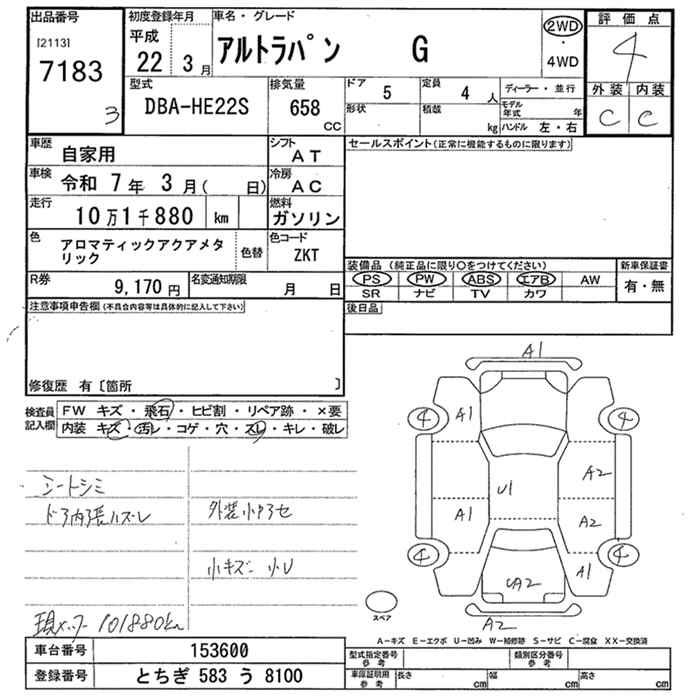 出品番号
[2113]
7183
3
初度登録年月
平成
22 3月
車名・グレード
アルトラパン G
2WD
・
4WD
評価点
4
外装 内装
C C
型式
DBA-HE22S
排気量
658
CC
ドア
5
定員
4人
形状
積載
kg
ディーラー・並行
モデル年式 年
ハンドル 左・右
車歴
自家用
シフト
AT
車検
令和 7年 3月( 日)
冷房
AC
走行
10万1千880 km
燃料
ガソリン
色
アロマティックアクアメタ
リック
色替
色コード
ZKT
R券
9,170円
名変通知期限
月 日
セールスポイント(正常に機能するものに限ります)
装備品 (純正品に限り○をつけてください)
PS PW ABS エアB AW
SR ナビ TV カワ
新車保証書
有・無
後日品
注意事項申告欄(不具合内容等は具体的に記入して下さい)
修復歴 有〔箇所 〕
検査員
記入欄
FW キズ・飛石・ヒビ割・リペア跡・×要
内装 キズ・汚レ・コゲ・穴・スレ・キレ・破レ
シートシミ
ドア内張ハズレ
外装小ヤセ
小キズ 小U
現メーター 101880km
A1
4
A1
4
A2
U1
A1
A2
4
A1
4
UA2
A2
スペア
A-キズ E-エクボ U-凹み W-補修跡 S-サビ C-腐食 XX-交換済
車台番号
153600
登録番号
とちぎ 583 う 8100
型式指定番号
参考
類別区分番号
参考
車庫証明用
参考
長さ cm
幅 cm
高さ cm